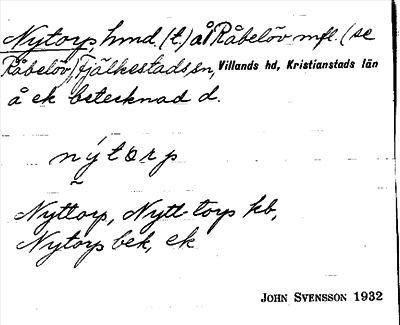 Nytorp, hmd. (t.) å Råbelöv mfl. (se
Råbelöv), Fjälkestads sn, Villands hd, Kristianstads län
å ek betecknad d.
nýtorp
Nyttorp, Nytt torp kb,
Nytorp bek, ek
JOHN SVENSSON 1932